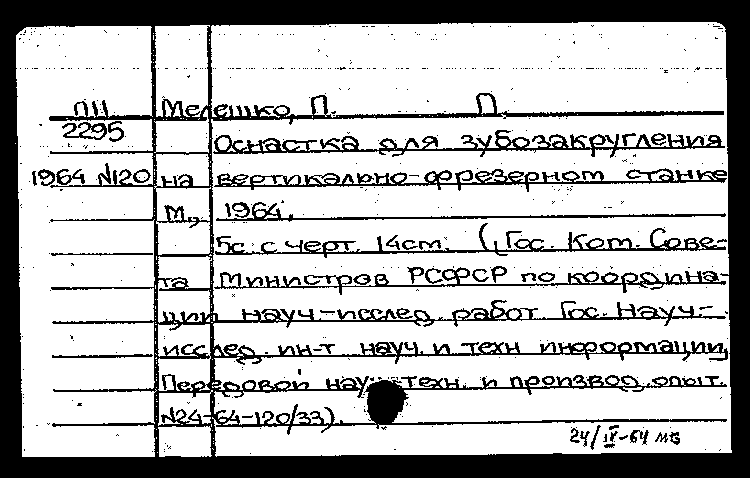 ПН Мелешко, П. П
2295
Оснастка для зубозакругления
1964 N120 на вертикально-фрезерном станке
М., 1964.
5с. с черт. 14см. (Гос. Ком. Сове-
та Министров РСФСР по координа-
ции науч-исслед. работ Гос. Науч-
исслед. ин-т науч. и техн информации,
Передовой науч-техн. и производ. опыт.
N24-64-120/33).
24/IX-64 мв